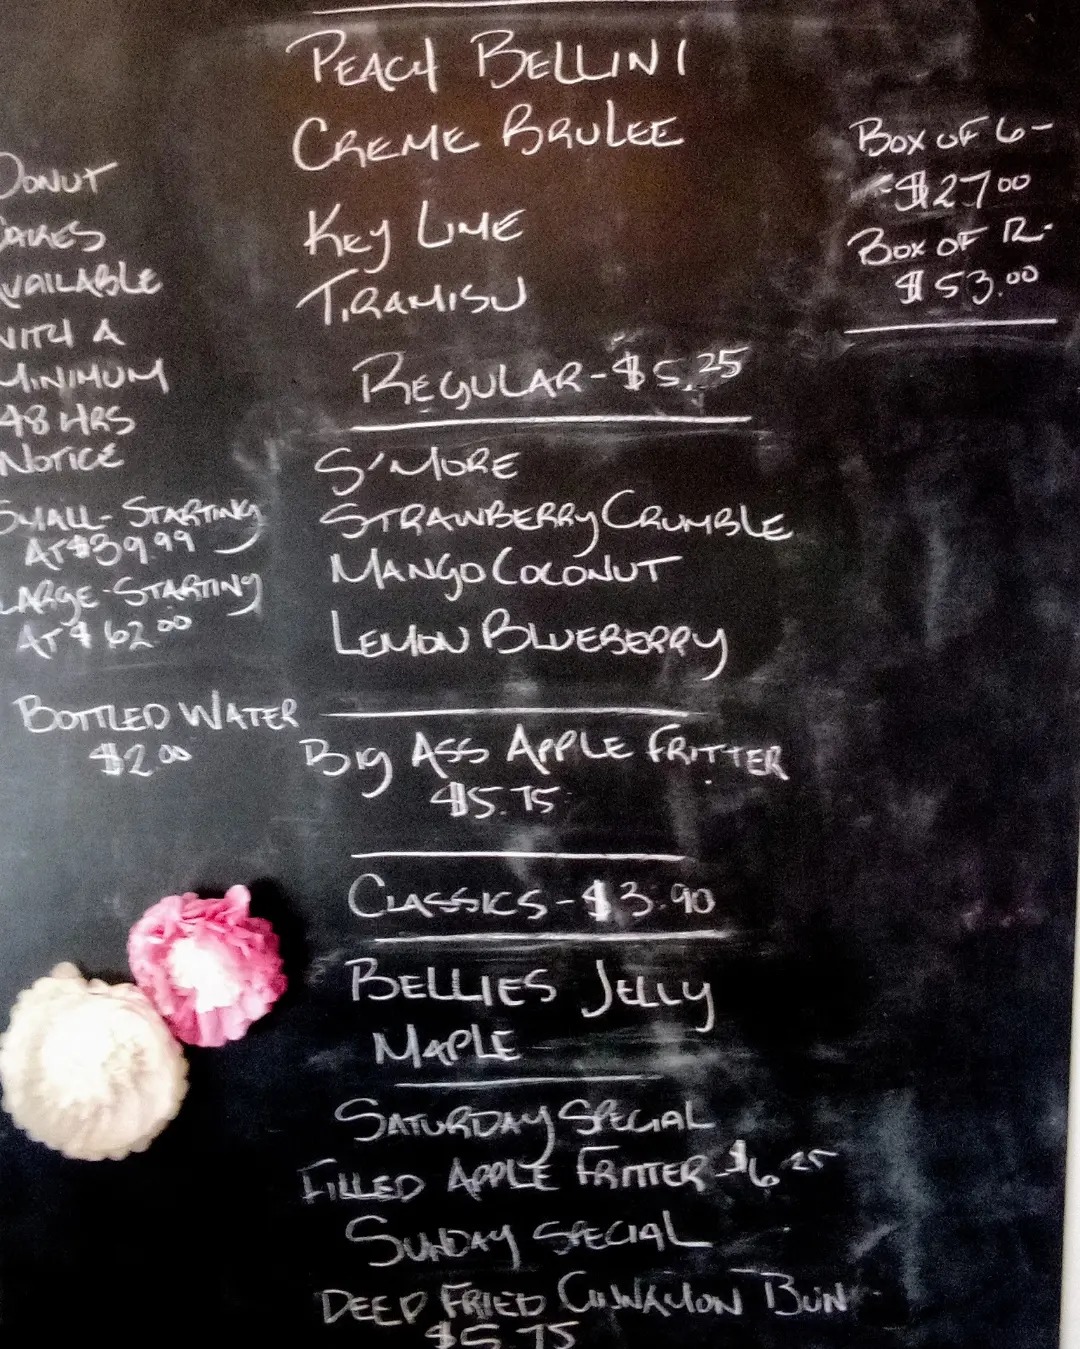 PEACH BELLINI
CREME BRULEE
KEY LIME
TIRAMISU
REGULAR - $5.25
S'MORE
STRAWBERRY CRUMBLE
MANGO COCONUT
LEMON BLUEBERRY
BIG ASS APPLE FRITTER
$5.75
CLASSICS - $3.90
BELLIES JELLY
MAPLE
SATURDAY SPECIAL
FILLED APPLE FRITTER - $6.25
SUNDAY SPECIAL
DEEP FRIED CINNAMON BUN
$5.75
DONUT
CAKES
AVAILABLE
WITH A
MINIMUM
48 HRS
NOTICE
SMALL - STARTING
AT $39.99
LARGE - STARTING
AT $62.00
BOTTLED WATER
$2.00
BOX OF 6 -
$27.00
BOX OF 12 -
$53.00